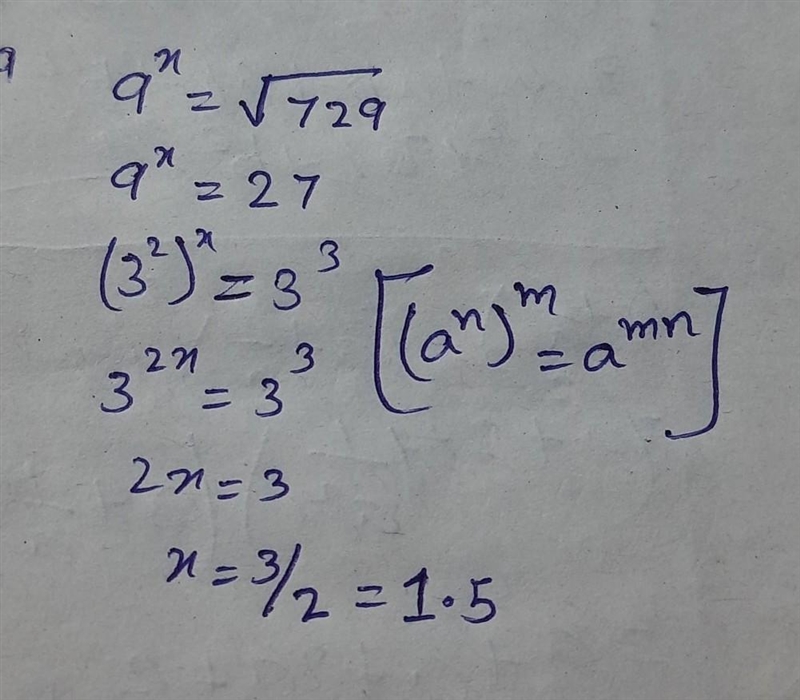 9^x = √729
9^x = 27
(3^2)^x = 3^3 [(a^n)^m = a^mn]
3^2x = 3^3
2x = 3
x = 3/2 = 1.5